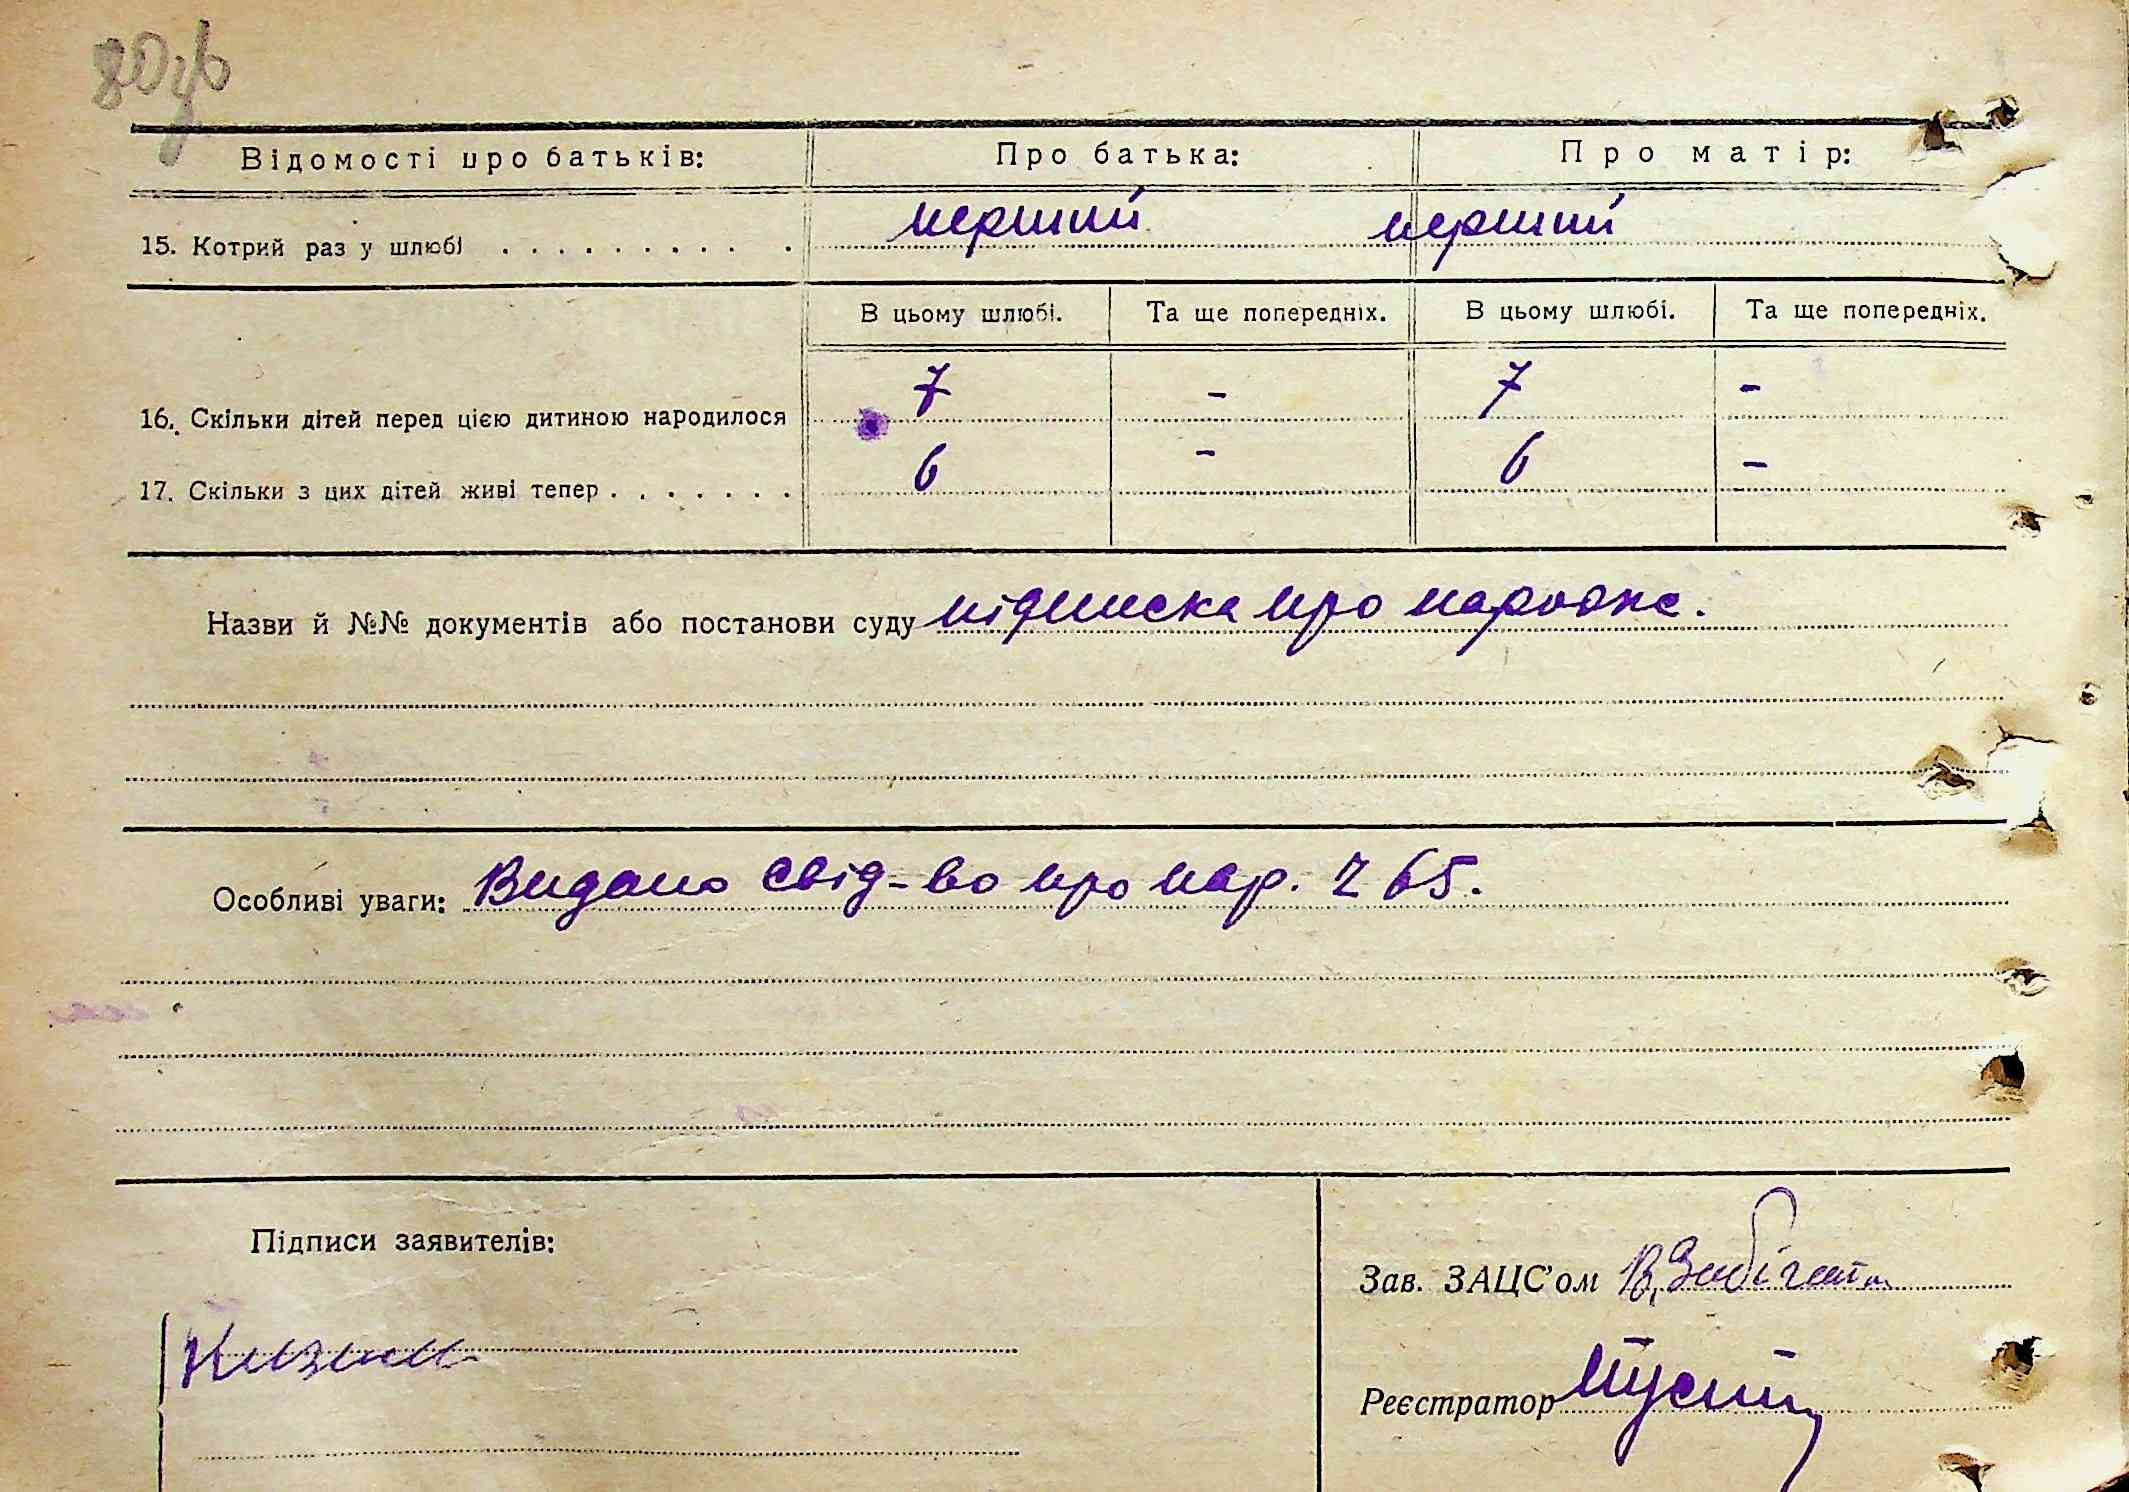 Відомості про батьків: Про батька: Про матір:
15. Котрий раз у шлюбі . . . . . . . . . . . перший перший
В цьому шлюбі. Та ще попередніх. В цьому шлюбі. Та ще попередніх.
16. Скільки дітей перед цією дитиною народилося 7 - 7 -
17. Скільки з цих дітей живі тепер . . . . . . . 6 - 6 -
Назви й №№ документів або постанови суду підписка про народж.
Особливі уваги: Видано свід-во про нар. № 65.
Підписи заявителів:
Зав. ЗАЦС'ом
Реєстратор